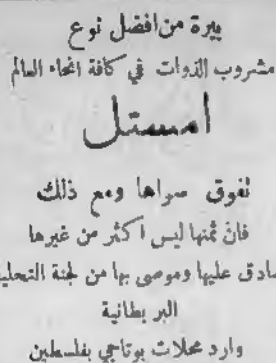 بيرة من افضل نوع
مشروب الذوات في كافة انحاء العالم
امستل
تفوق سواها ومع ذلك
فان ثمنها ليس اكثر من غيرها
صادق عليها وموصى بها من لجنة التحليل
البريطانية
وارد محلات بوتاجي بفلسطين